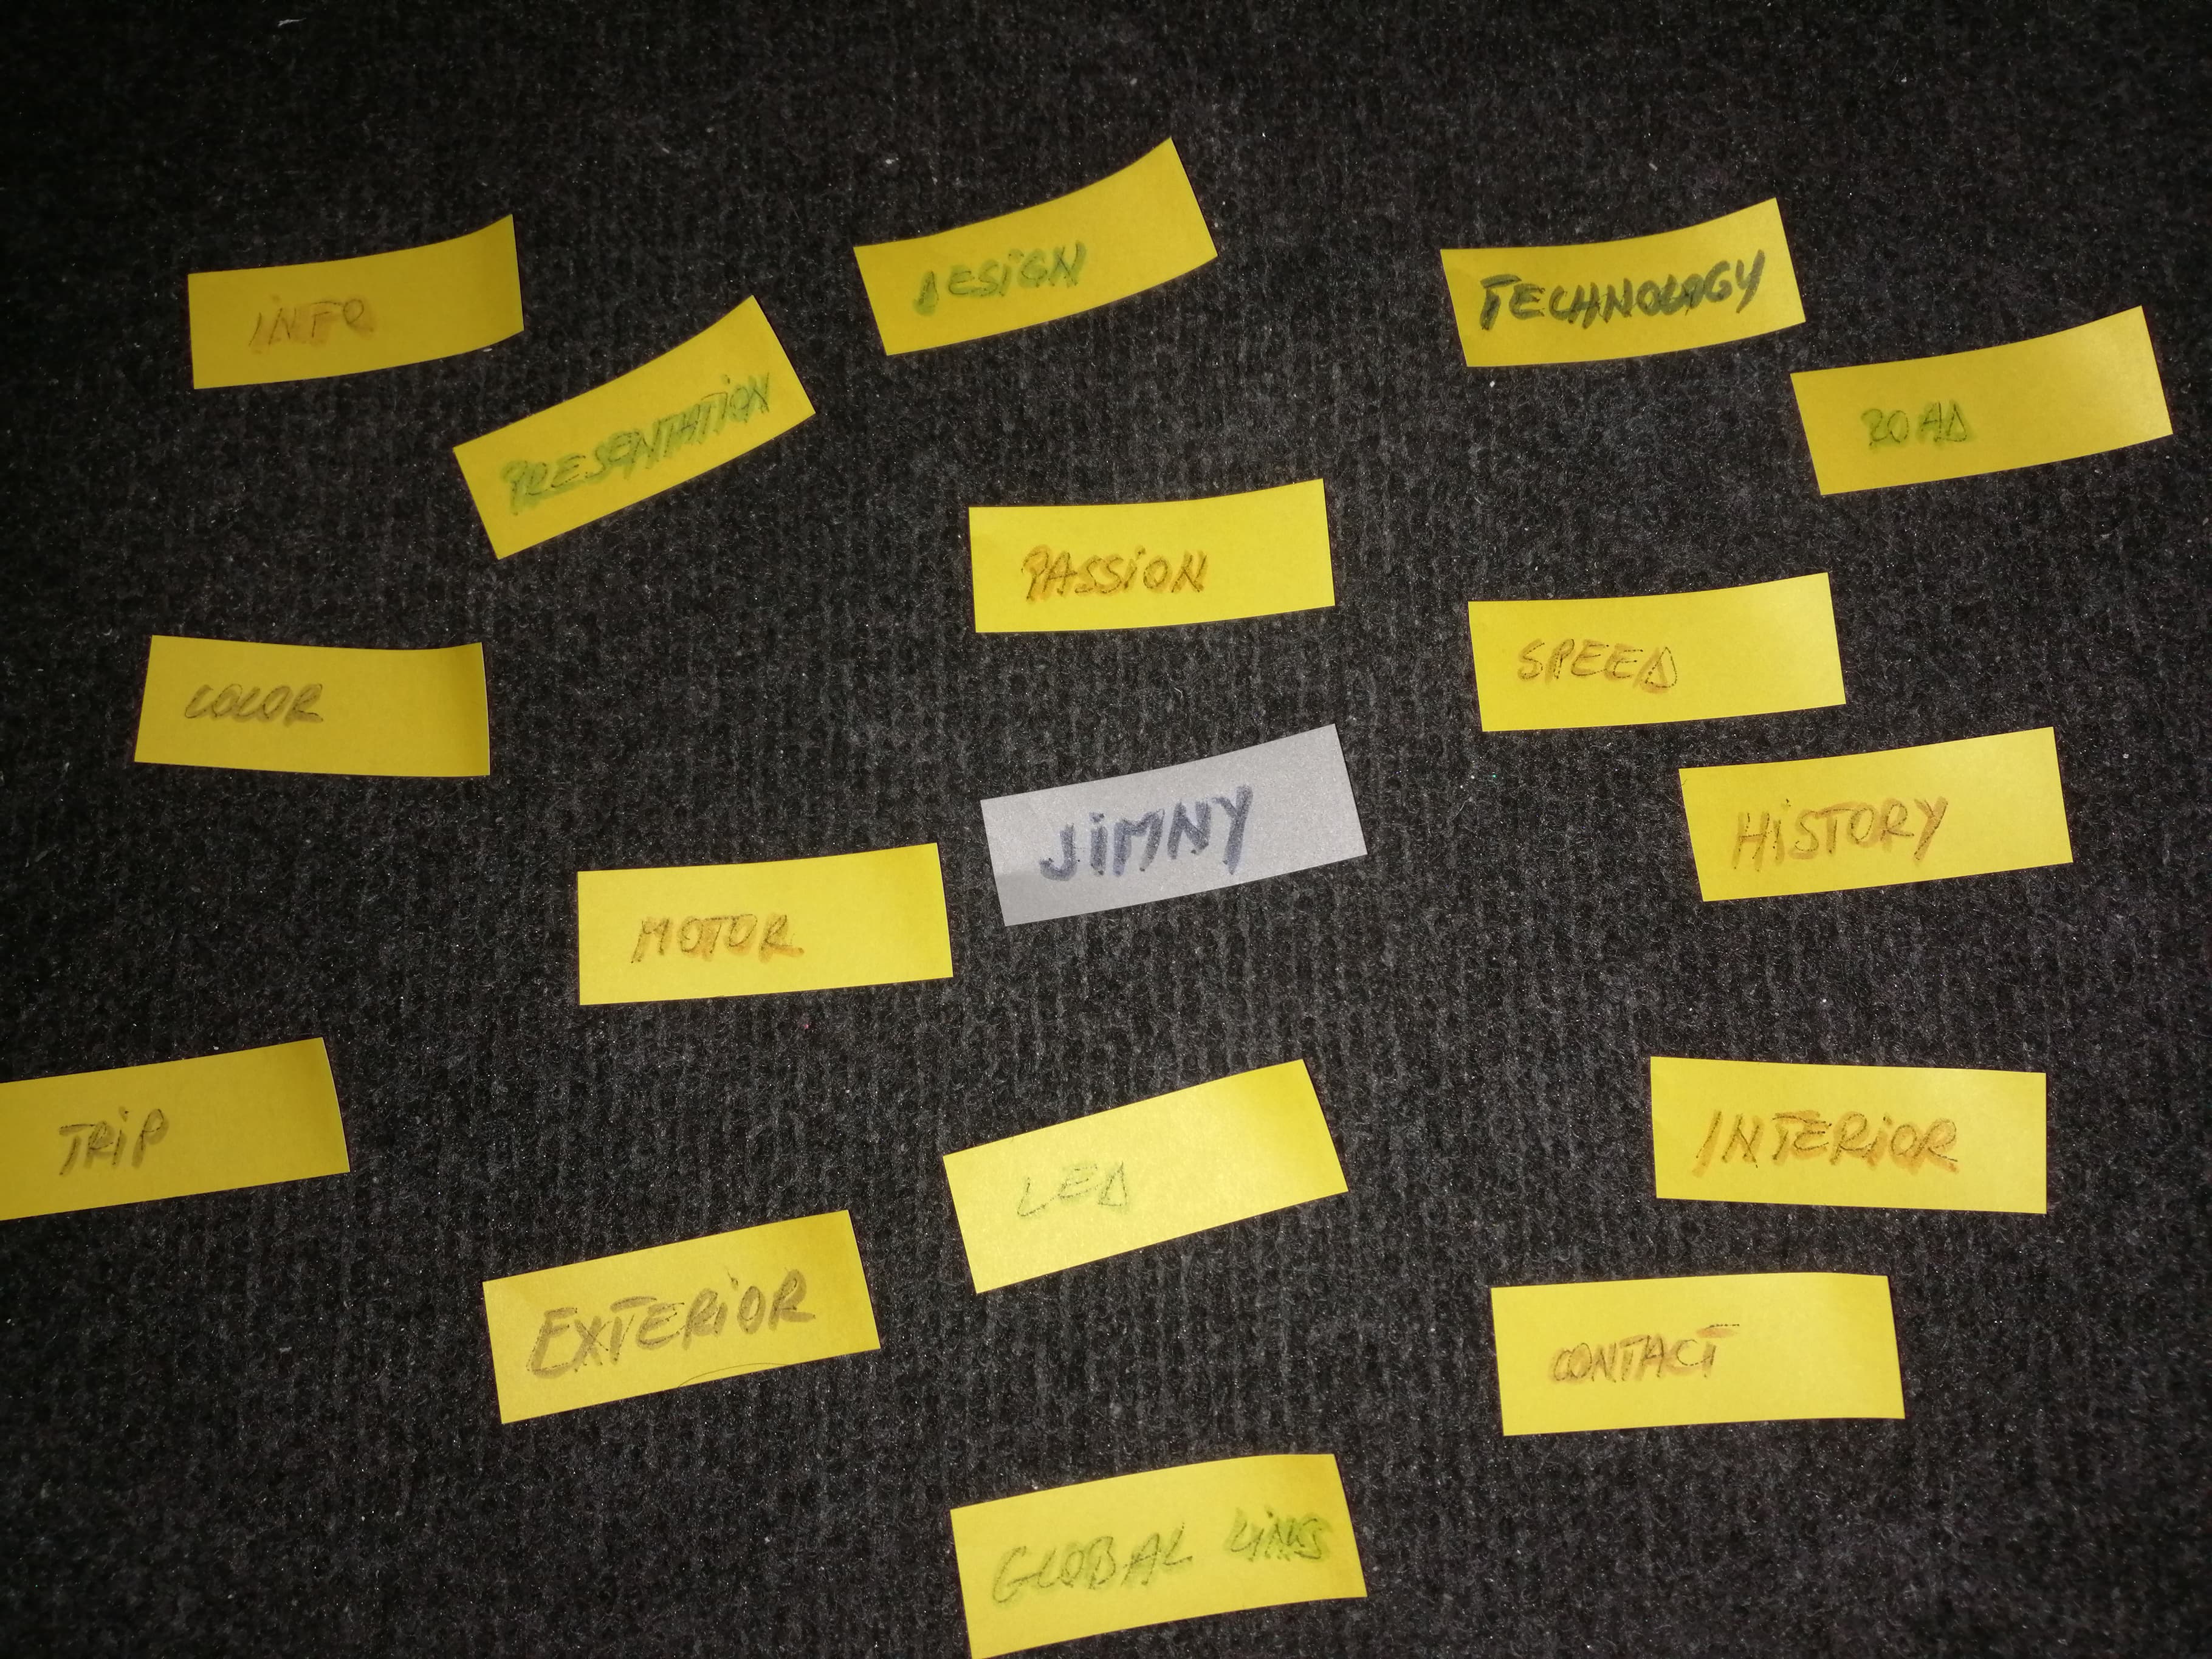 INFO
DESIGN
TECHNOLOGY
PRESENTATION
ROAD
PASSION
SPEED
COLOR
JIMNY
HISTORY
MOTOR
TRIP
LED
INTERIOR
EXTERIOR
CONTACT
GLOBAL LINKS